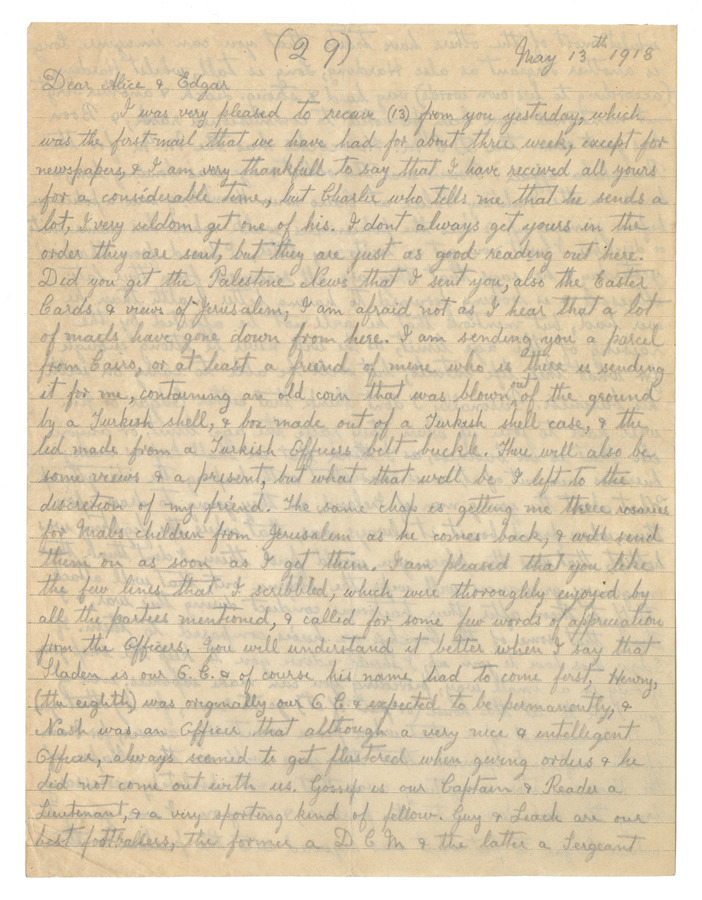 (29) May 13th 1918
Dear Alice & Edgar
I was very pleased to receive (13) from you yesterday, which
was the first mail that we have had for about three week, except for
newspapers, & I am very thankfull to say that I have received all yours
for a considerable time, but Charlie who tells me that he sends a
lot, I very seldom get one of his. I dont always get yours in the
order they are sent, but they are just as good reading out here.
Did you get the Palestine News that I sent you, also the Easter
Cards & views of Jerusalem, I am afraid not as I hear that a lot
of mails have gone down from here. I am sending you a parcel
from Cairo, or at least a friend of mine who is there is sending
it for me, containing an old coin that was blown out of the ground
by a Turkish shell, & box made out of a Turkish shell case, & the
lid made from a Turkish Officers belt buckle. There will also be
some views & a present, but what that will be I left to the
discretion of my friend. The same chap is getting me three rosaries
for Mabs children from Jerusalem as he comes back, & will send
them on as soon as I get them. I am pleased that you like
the few lines that I scribbled, which were thoroughly enjoyed by
all the parties mentioned, & called for some few words of appreciation
from the Officers. You will understand it better when I say that
Sladen is our C.O. & of course his name had to come first, Henry,
(the eighth) was originally our C O & expected to be permanently, &
Nash was an Officer that although a very nice & intelligent
Officer, always seemed to get flustered when giving orders & he
did not come out with us. Gossip is our Captain & Reader a
Lieutenant, & a very sporting kind of fellow. Guy & Leach are our
best footballers, the former a D C M & the latter a Sergeant